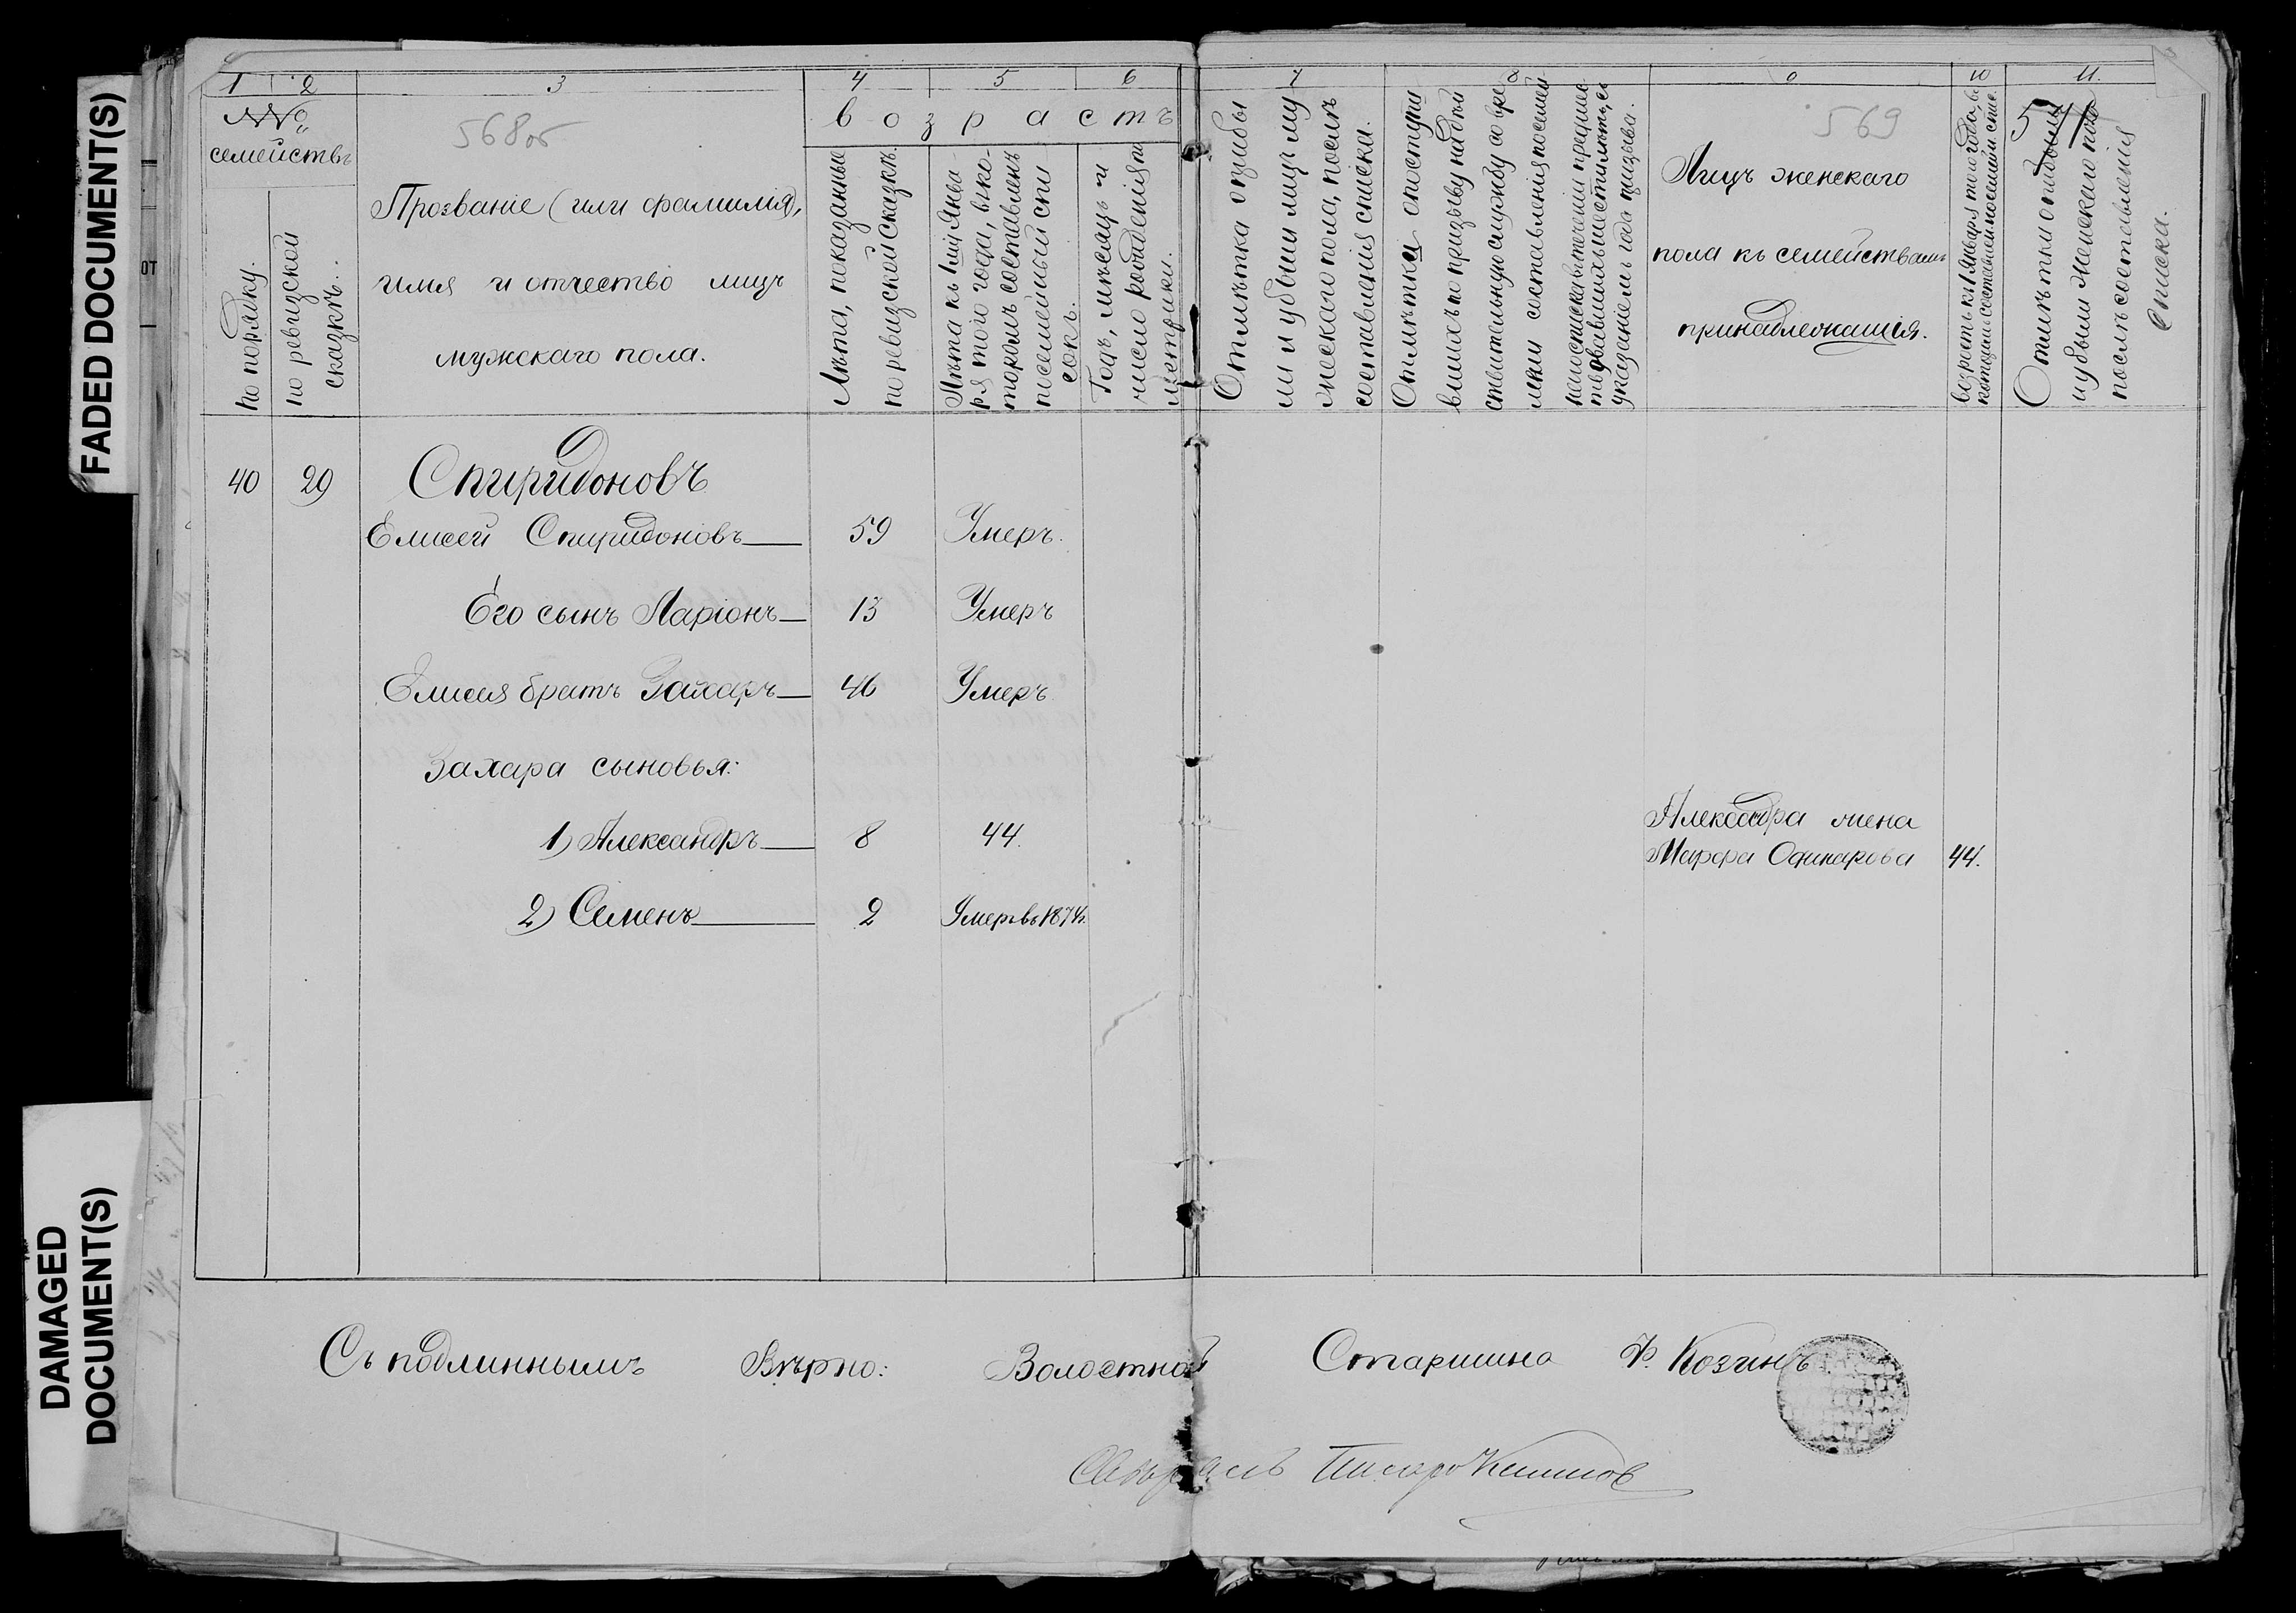 FADED DOCUMENT(S)
DAMAGED
DOCUMENT(S)
ОТ
1 2 3 4 5 6
№№
семействъ
по порядку.
по ревизской
сказкѣ.
568об
Прозваніе (или фамилія),
имя и отчество лицъ
мужскаго пола.
возрастъ
Лѣта, показанные
по ревизской сказкѣ.
Лѣта къ 1му Янва-
ря того года, въ ко-
торомъ составленъ
посемейный спи
сокъ.
Годъ, мѣсяцъ и
число рожденія по
метрики.
7 8 9 10 11.
Отмѣтка о прибы
ли и убыли лицъ му
жескаго пола, послѣ
составленія списка.
Отмѣтки о поступи
вшихъ по призыву на дѣй
ствительную службу со вре
мени составленія посемей
указаніемъ года призыва.
569
Лицъ женскаго
пола къ семействамъ
принадлежащія.
возрастъ къ 1 Января того года, въ
которомъ составленъ посемейн. спис.
571
Отмѣтки о прибыли
и убыли женскаго пола
послѣ составленія
списка.
40 29 Спиридоновъ
Елисей Спиридоновъ 59 Умеръ.
Его сынъ Ларіонъ 13 Умеръ
Елисея братъ Захаръ 46 Умеръ
Захара сыновья:
1) Александръ 8 44.
Александра жена
Марфа 44.
2) Семенъ 2 Умеръ въ 1874г.
Съ подлиннымъ Вѣрно: Волостной Старшина Ф. Козинъ
Свѣрялъ Писарь